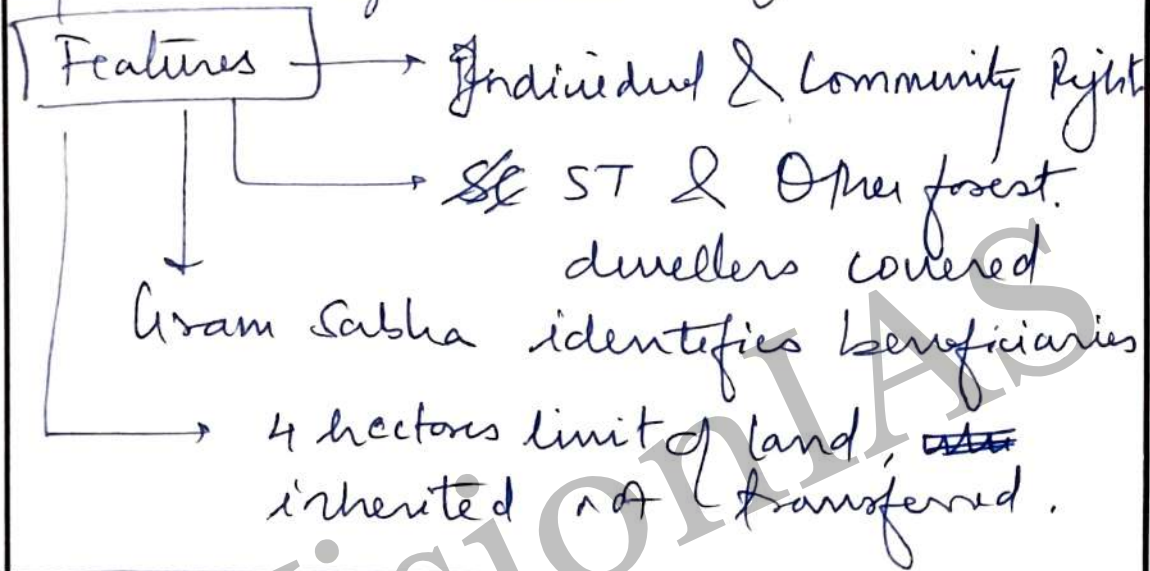 Features → Individual & Community Right
ST & Other forest.
dwellers covered
Gram Sabha identifies beneficiaries
4 hectores limit of land,
inherited not transferred.
VisionIAS